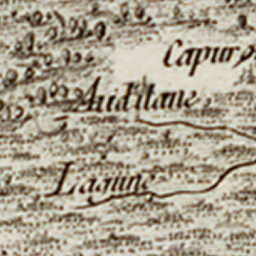 Capur
Auditane
Lagune